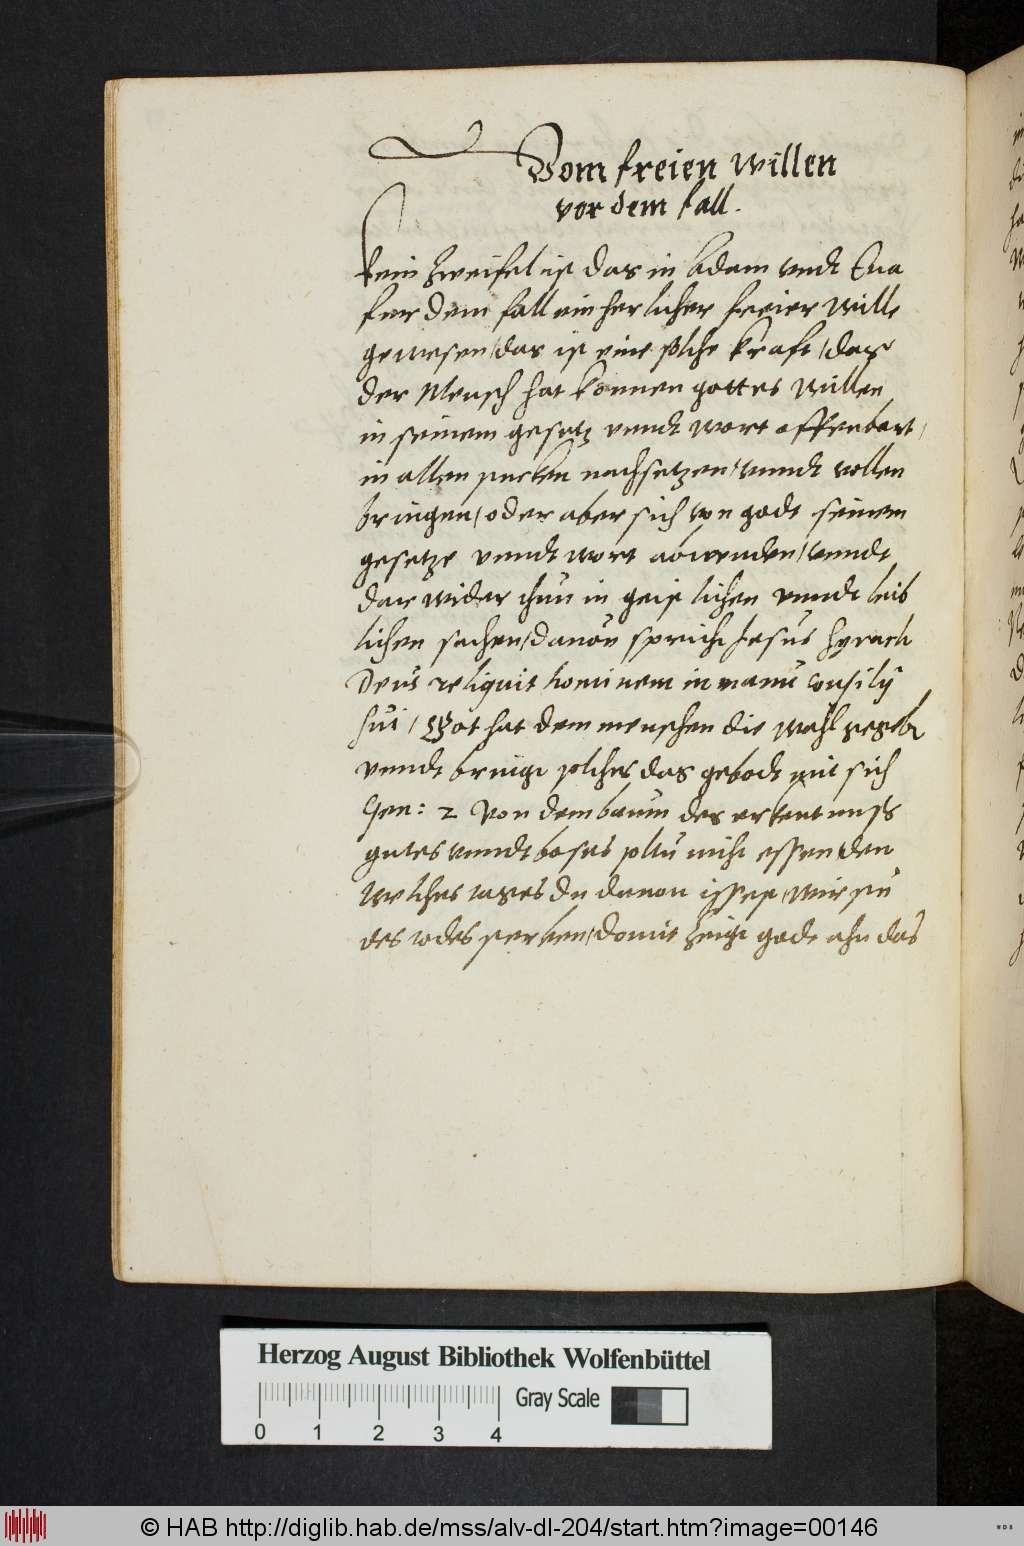 Vom freien willen
vor dem fall.
Kein zweifel ist das in Adam vndt Eua
fur dem fall ein herlicher freier wille
gewesen/das ist eine solche kraft/das
der Mensch hat konnen gottes willen
in seinem gesetz vnndt wort offenbart/
in allen nachsetzen/vnndt vollen
bringen/oder aber sich von godt seinem
gesetze vnndt wort abwenden/vnndt
dar wider thun in geist lichen vnndt leib
lichen sachen/dauon spricht Jesus Syrach
Deus reliquit hominem in manu consilij
sui/Got hat dem menschen die wahl gegeben
vnndt bringt solches das gebodt mit sich
Gen: 2 Von dem baum des erkentnuss
gutes vnndt boses soltu nicht essen/den
welches tages du dauon issest/wirstu
des todes sterben/domit zeigt godt ahn das
Herzog August Bibliothek Wolfenbüttel
Gray Scale
0 1 2 3 4
© HAB http://diglib.hab.de/mss/alv-dl-204/start.htm?image=00146